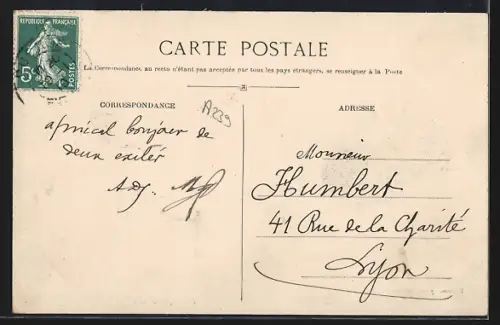 REPUBLIQUE FRANÇAISE
5c
POSTES
CARTE POSTALE
La Correspondance au recto n'étant pas acceptée par tous les pays étrangers, se renseigner à la Poste
CORRESPONDANCE
A239
amical bonjour de
deux exilés
ADRESSE
Monsieur
Humbert
41 Rue de la Charité
Lyon